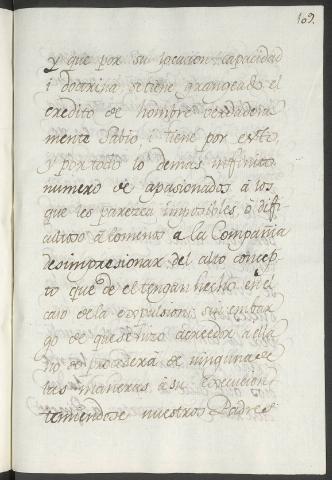 109.
y que por su locucion capacidad
i doctrina se tiene grangeado el
credito de hombre verdadera
mente Sabio i tiene por esto,
y por todo lo demas infinito
numero de apasionados â los
que les parezca imposibles, ô difi
cultoso â lo menos a la Compañia
desimpresionar del alto concep-
to que de el tengan hecho en el
caso de la expulsion: sin embar
go de que se hizo acreedor a ella
no se procederà de ninguna de
las maneras â su execucion
temiendose nuestros Padres